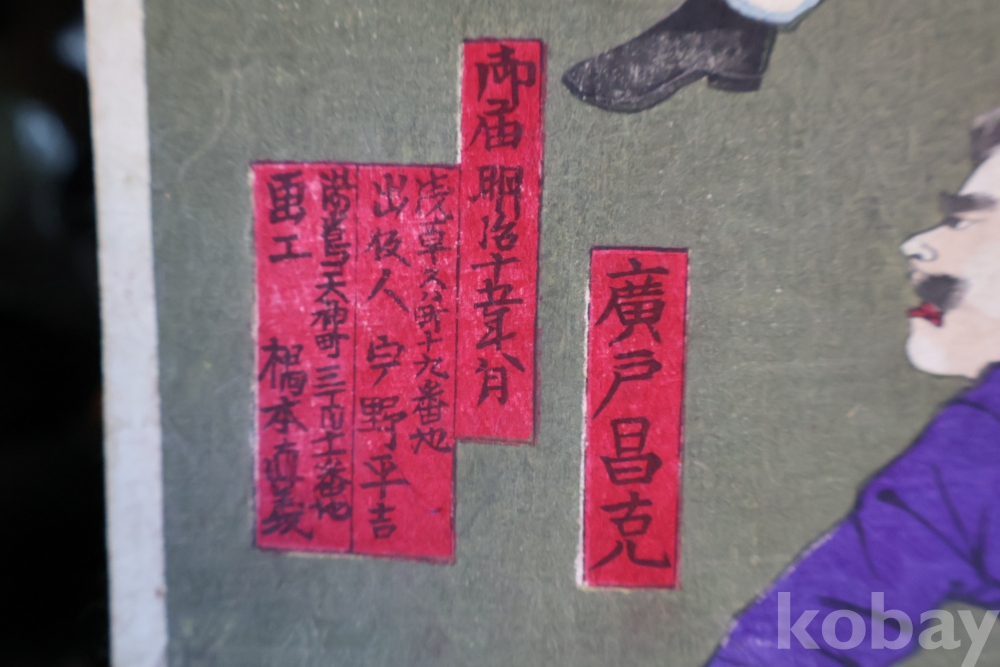 廣戸昌克
御届 明治十五年 月
浅草 町十九番地
出板人 宇野平吉
湯島天神町三丁目十 番地
画工 楊本直義
kobay